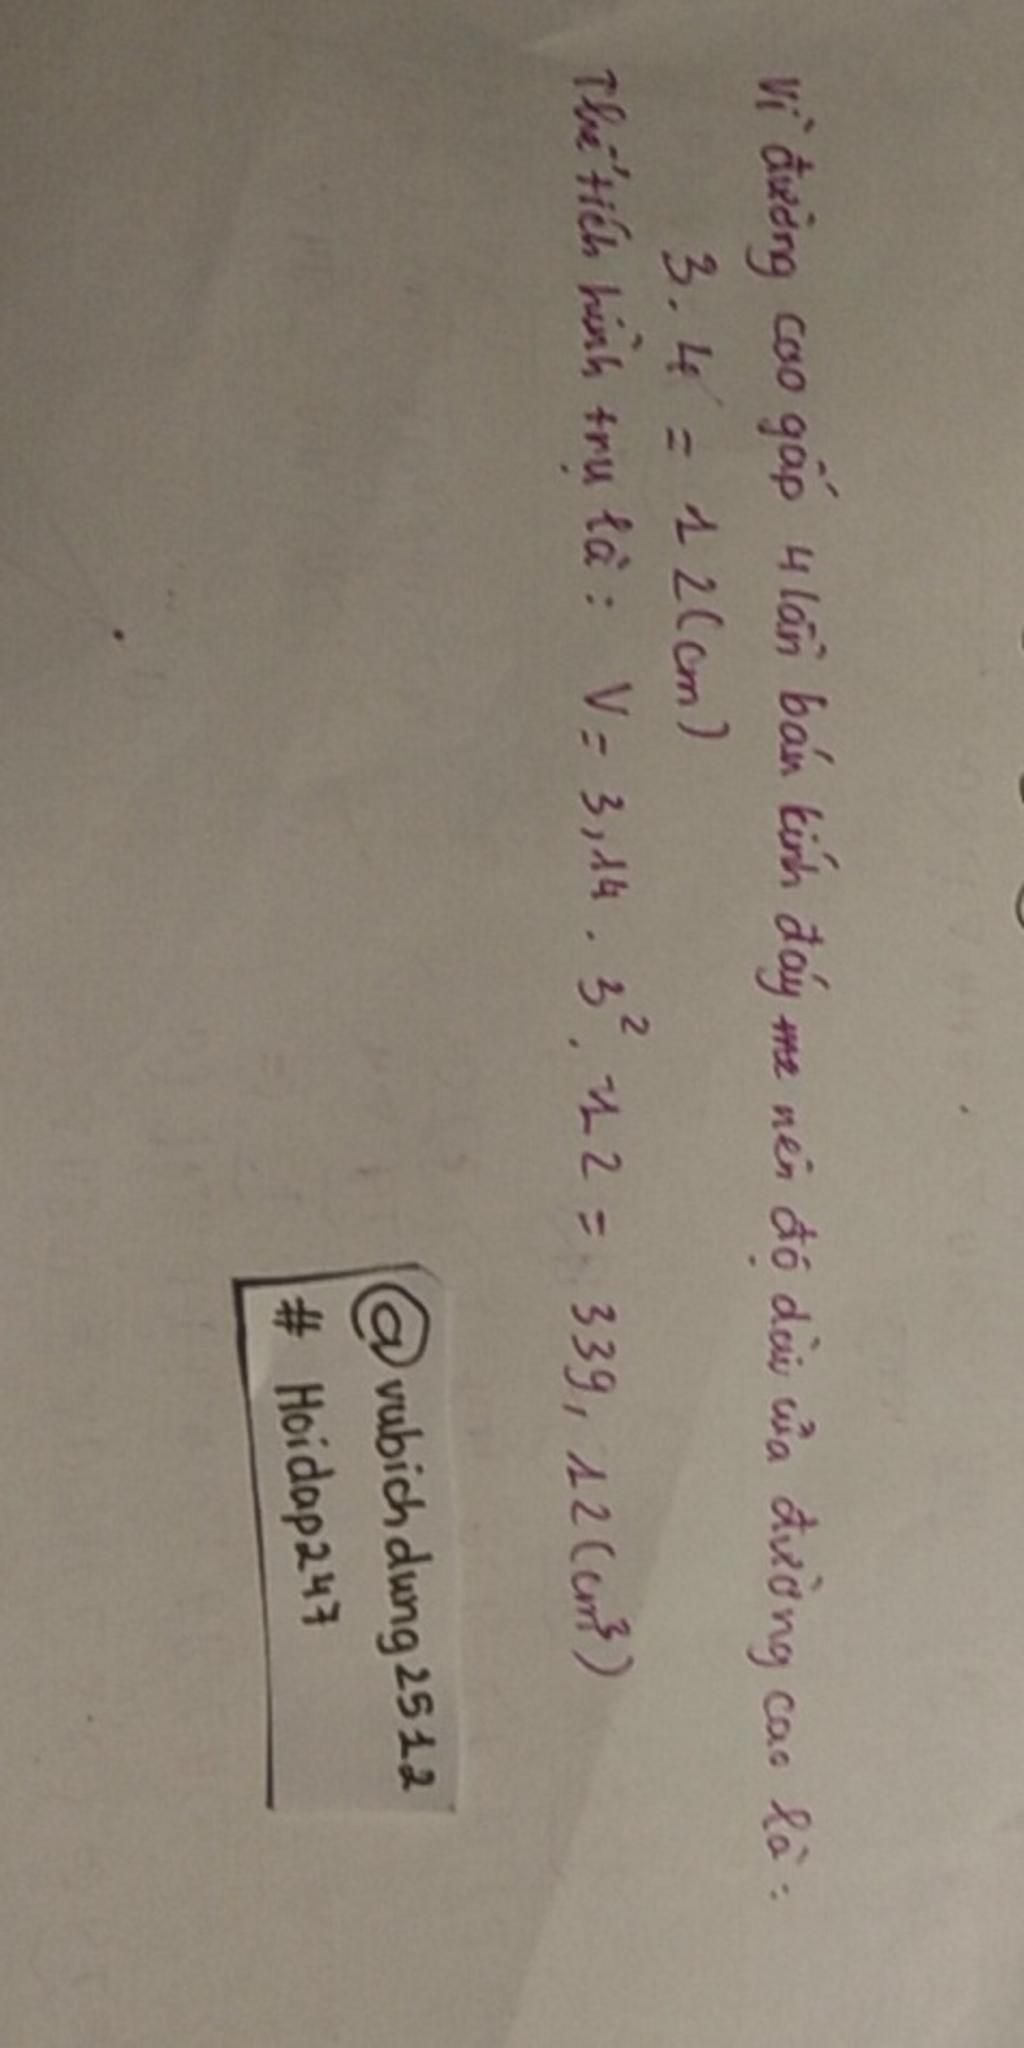 Vì đường cao gấp 4 lần bán kính đáy nên độ dài của đường cao là :
3. 4 = 12(cm)
Thể tích hình trụ là : V = 3,14 . 3². 12 = 339,12(cm³)
@vubichdung2512
# Hoidap247